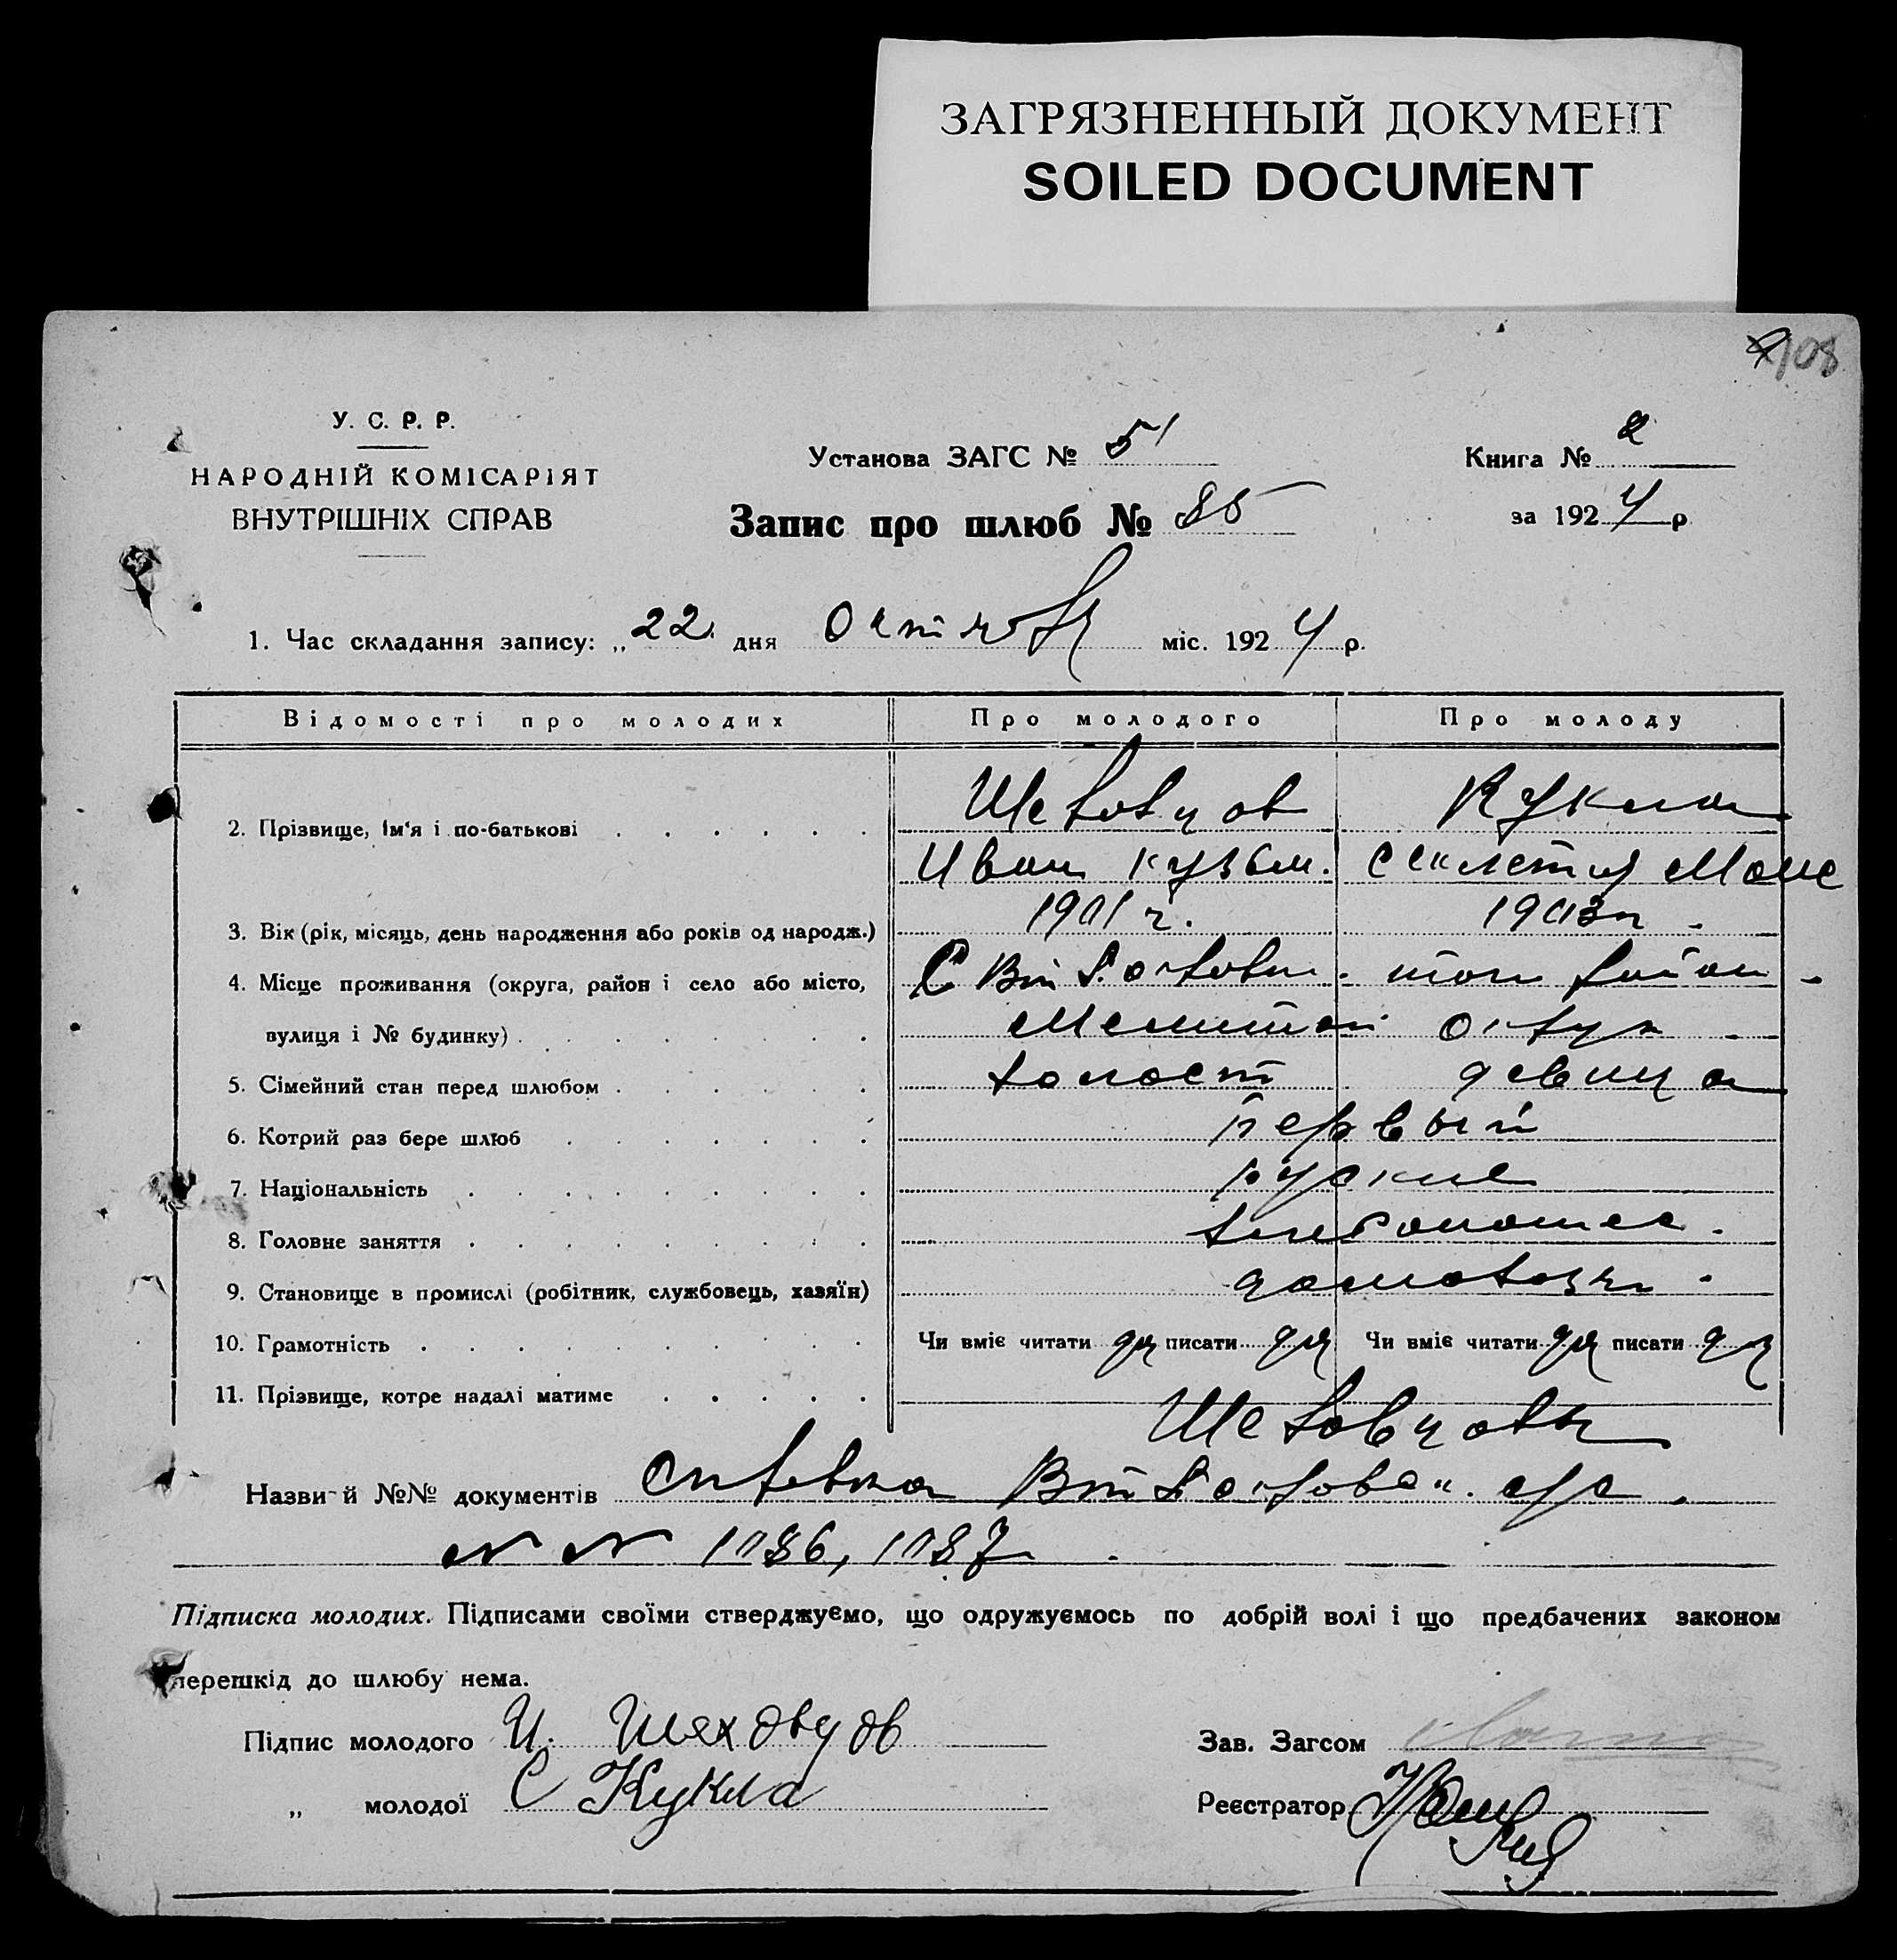 ЗАГРЯЗНЕННЫЙ ДОКУМЕНТ
SOILED DOCUMENT
108
У. С. Р. Р.
НАРОДНІЙ КОМІСАРІЯТ
ВНУТРІШНІХ СПРАВ
Установа ЗАГС № 51
Книга № 2
Запис про шлюб № 85
за 1924 р
1. Час складання запису: „ 22 дня Октября міс. 1924 р.
Відомості про молодих Про молодого Про молоду
2. Прізвище, ім'я і по-батькові Шеховцов Кукла
Иван Кузьм.
3. Вік (рік, місяць, день народження або років од народж.) 1901 г. 1903 г
4. Місце проживання (округа, район і село або місто, С
вулиця і № будинку) Мелитоп округ
5. Сімейний стан перед шлюбом холост девица
6. Котрий раз бере шлюб первый
7. Національність руские
8. Головне заняття хлебопашес.
9. Становище в промислі (робітник, службовець, хазяїн) домохоз
10. Грамотність Чи вміє читати да писати да Чи вміє читати да писати да
11. Прізвище, котре надалі матиме Шеховцовы
Назви й №№ документів
N N 1086, 1087
Підписка молодих. Підписами своїми стверджуємо, що одружуємось по добрій волі і що предбачених законом
перешкід до шлюбу нема.
Підпис молодого И. Шеховцов
Зав. Загсом
„ молодої С Кукла
Реєстратор